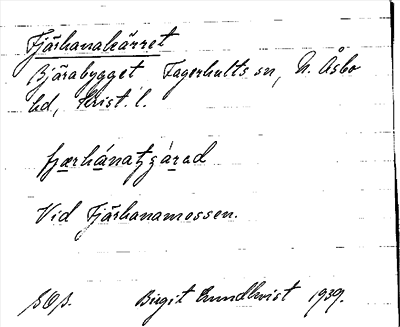 Fjärhanakärret
Bjärabygget Fagerhults sn, N. Åsbo
hd, Krist. l.
Vid Fjärhanamossen.
Birgit Lundkvist 1939.